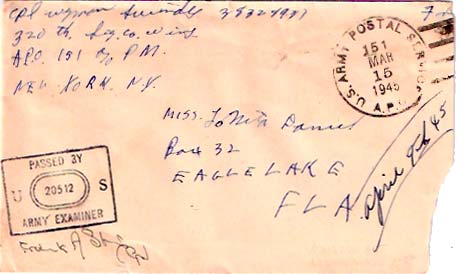 Cpl Wyman Swindle 38324987
320th. Sig. Co. Wing
A.P.O. 151 % P.M.
NEW. YORK. N.Y.
U.S. ARMY POSTAL SERVICE
151
MAR
15
1945
A.P.O.
MISS.
Box 32
EAGLE LAKE
FLA.
April 9th 45
PASSED BY
U 20512 S
ARMY EXAMINER
Frank A